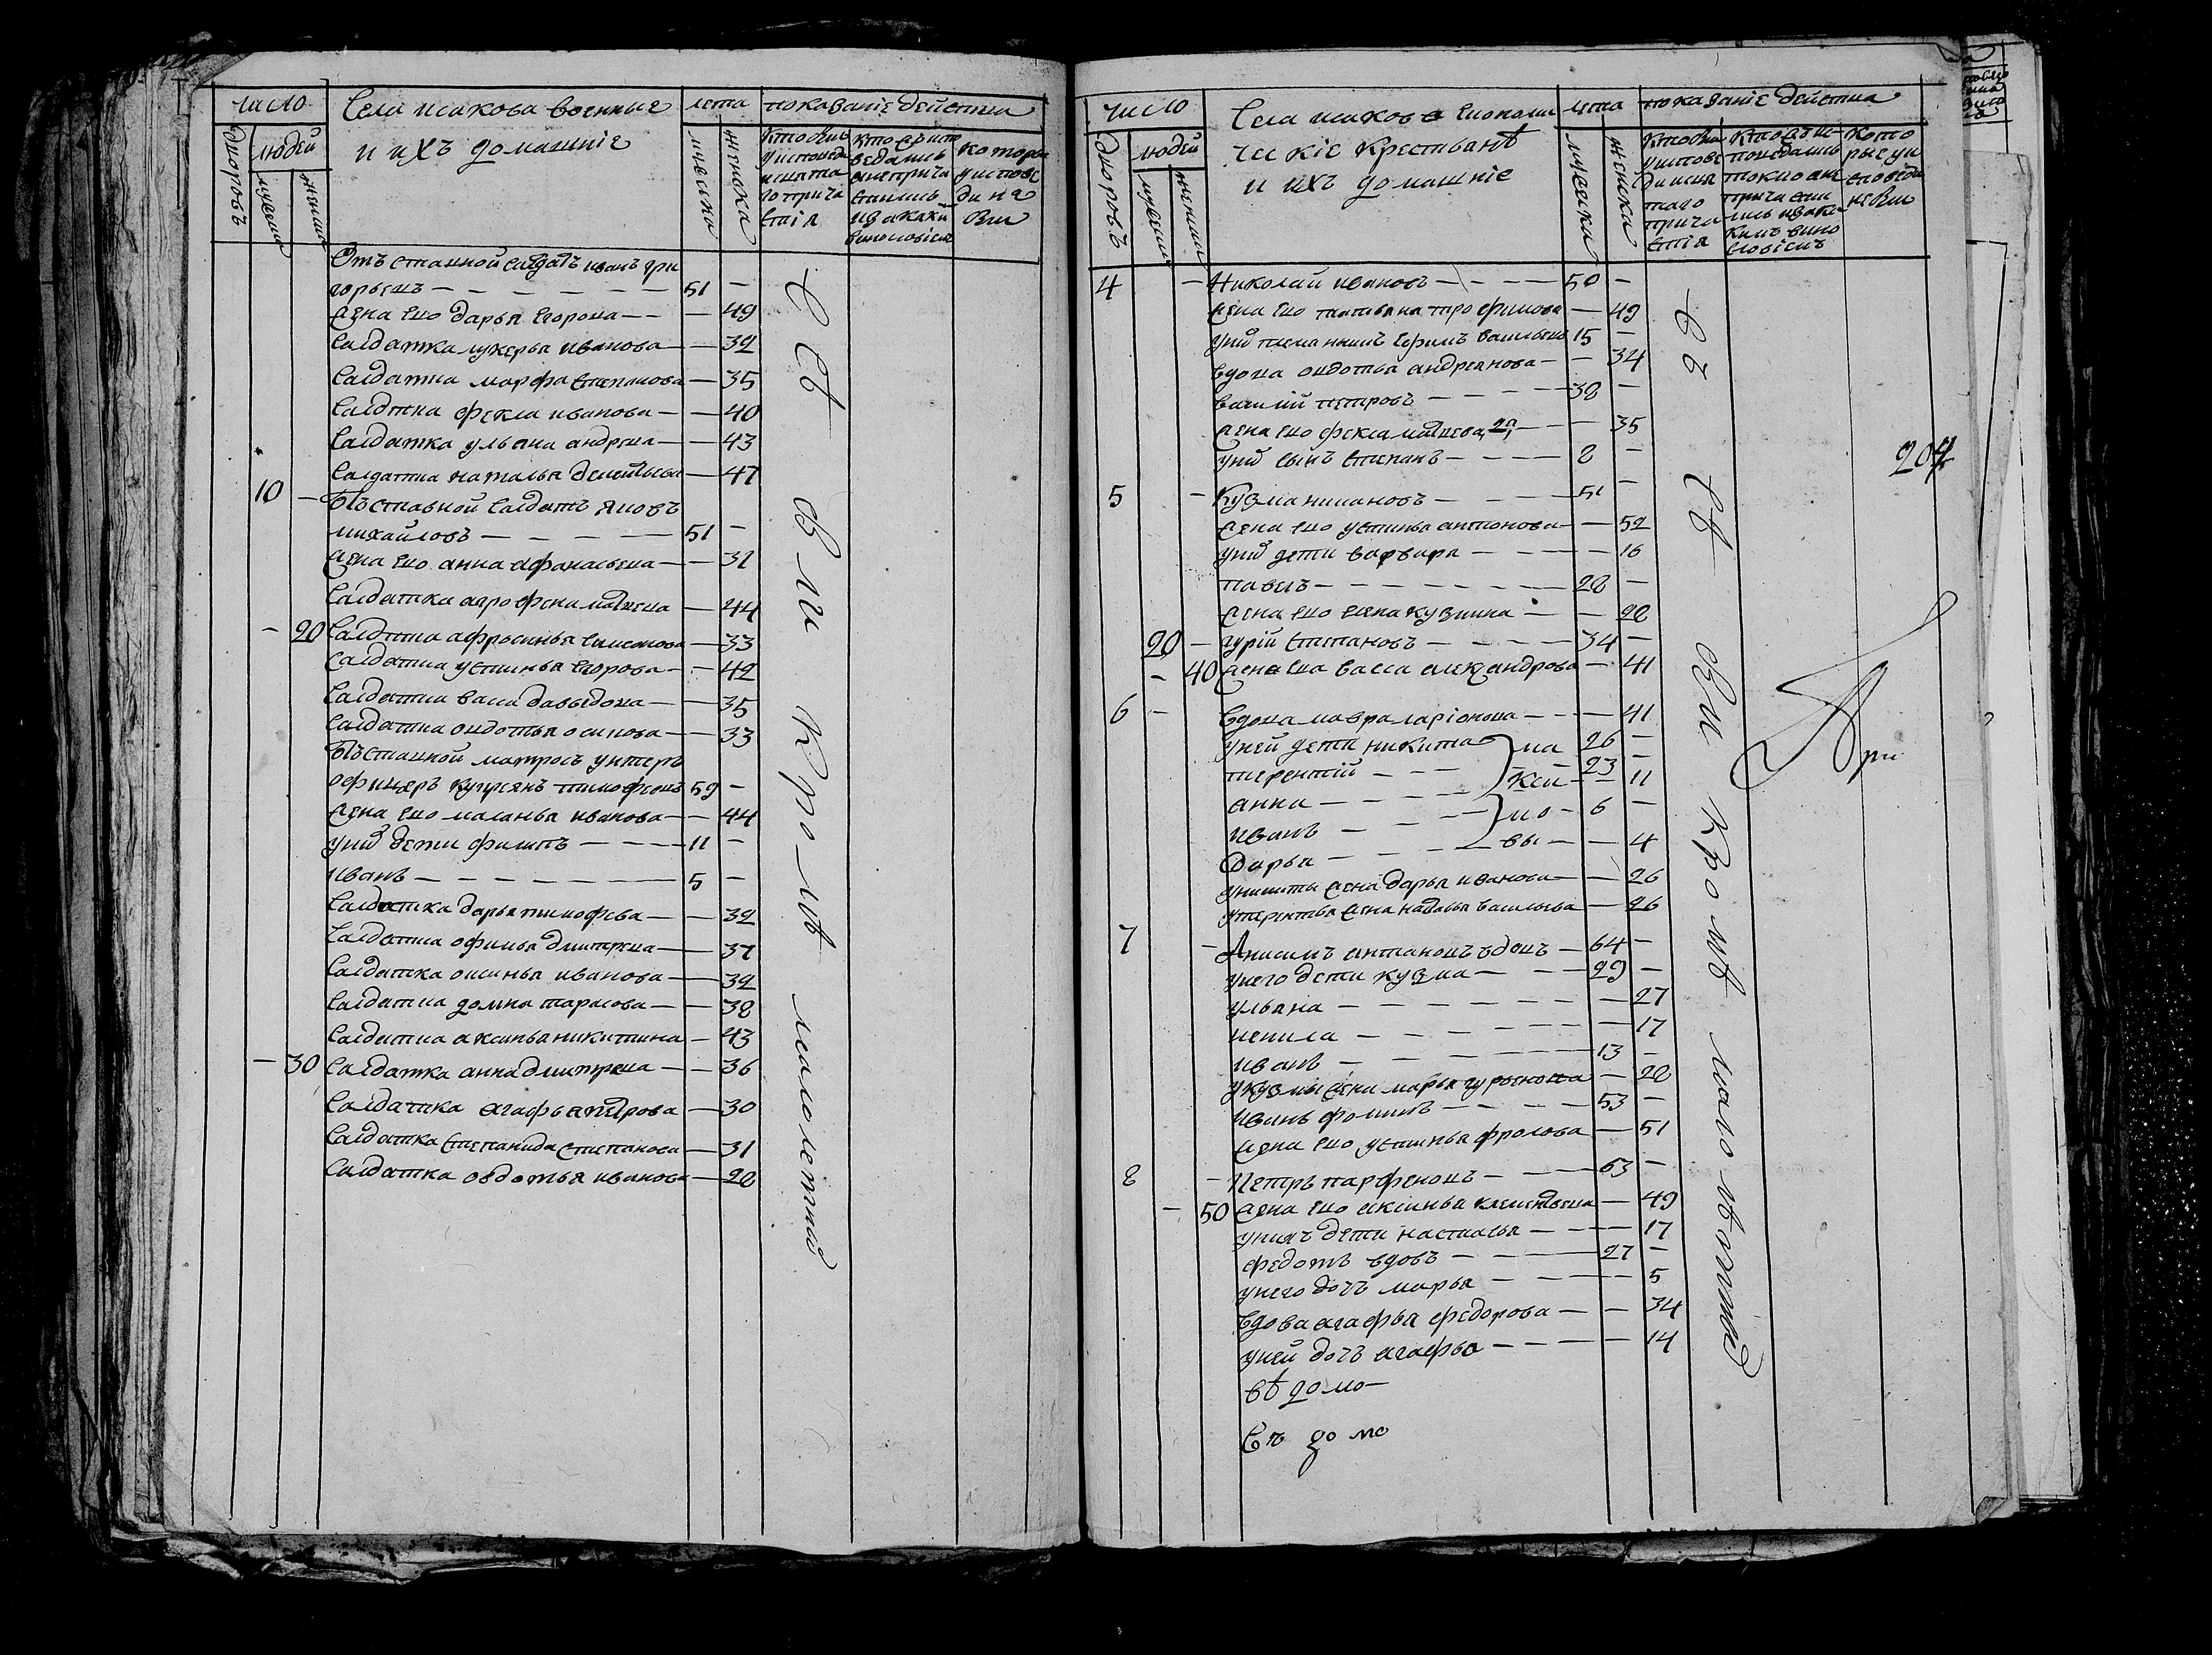 число
Села исакова военные
и ихъ домашніе
лета
показаніе действа
дворовъ
людей
мужеска
женска
мужеска
женска
Отъ ставной салдатъ иванъ гри
горьевъ — 51 —
жена ево дарья егорова — 49
Салдатка лукерья иванова — 32
Салдатка марфа степанова — 35
Салдатка фекла иванова — 40
Салдатка ульяна андреева — 43
Салдатка наталья дементьева — 47
10 — Отъ ставной салдатъ яковъ
михайловъ — 51 —
жена ево анна афанасьева — 31
Салдатка агрофена матвеева — 44
— 20 Салдатка афросинья симеонова — 33
Салдатка устинья егорова — 42
Салдатка васса давыдова — 35
Салдатка овдотья осипова — 33
Отъ ставной матросъ унтеръ
офицеръ купреянъ тимофеевъ 59 —
жена ево маланья иванова — 44
у них дети филипъ — 11 —
иванъ — 5 —
Салдатка дарья тимофева — 32
Салдатка офимья дмитреева — 37
Салдатка оксинья иванова — 32
Салдатка домна тарасова — 38
Салдатка аксинья никитина — 43
— 30 Салдатка анна дмитреева — 36
Салдатка агафья петрова — 30
Салдатка степанида степанова — 31
Салдатка овдотья иванова — 28
всѣ были кромѣ малолетних
число
Села исакова економи
ческіе крестьянѣ
и ихъ домашніе
лета
показаніе действа
дворовъ
людей
мужеска
женска
мужеска
женска
204
4 — Николай ивановъ — 50 —
жена ево татьяна трофимова — 49
у них племянникъ ефимъ васильевъ 15 —
вдова овдотья андреянова — 34
василій петровъ — 38 —
жена ево фекла матвеева — 35
у них сынъ степанъ — 2 —
5 — Кузма ивановъ — 51 —
жена ево устинья антонова — 52
у них дети варвара — 16
павелъ — 28 —
жена ево елена кузмина — 28
20 — гурій степановъ — 34 —
— 40 жена ева васса александрова — 41
6 — вдова мавра ларіонова — 41
у ней дети никита 26 —
терентій — 23 —
анна — 11
иванъ — 6 —
дарья — 4
у никиты жена дарья иванова — 26
у терентья жена надасья васильева — 26
7 — Анисимъ антановъ вдовъ — 64 —
у него дети кузма — 29 —
ульяна — 27
ненила — 17
иванъ — 13 —
у кузмы жена марья гурьенова — 28
иванъ фоминъ — 53 —
жена ево устинья фролова — 51
8 — Петръ парфеновъ — 63 —
— 50 жена ево аксинья клементьева — 49
у них дети настасья — 17
федотъ вдовъ — 27 —
у него дочь марья — 5
вдова агафья федорова — 34
у ней дочь агафья — 14
вѣ домо
въ домо
всѣ были кромѣ мало лѣтних
При